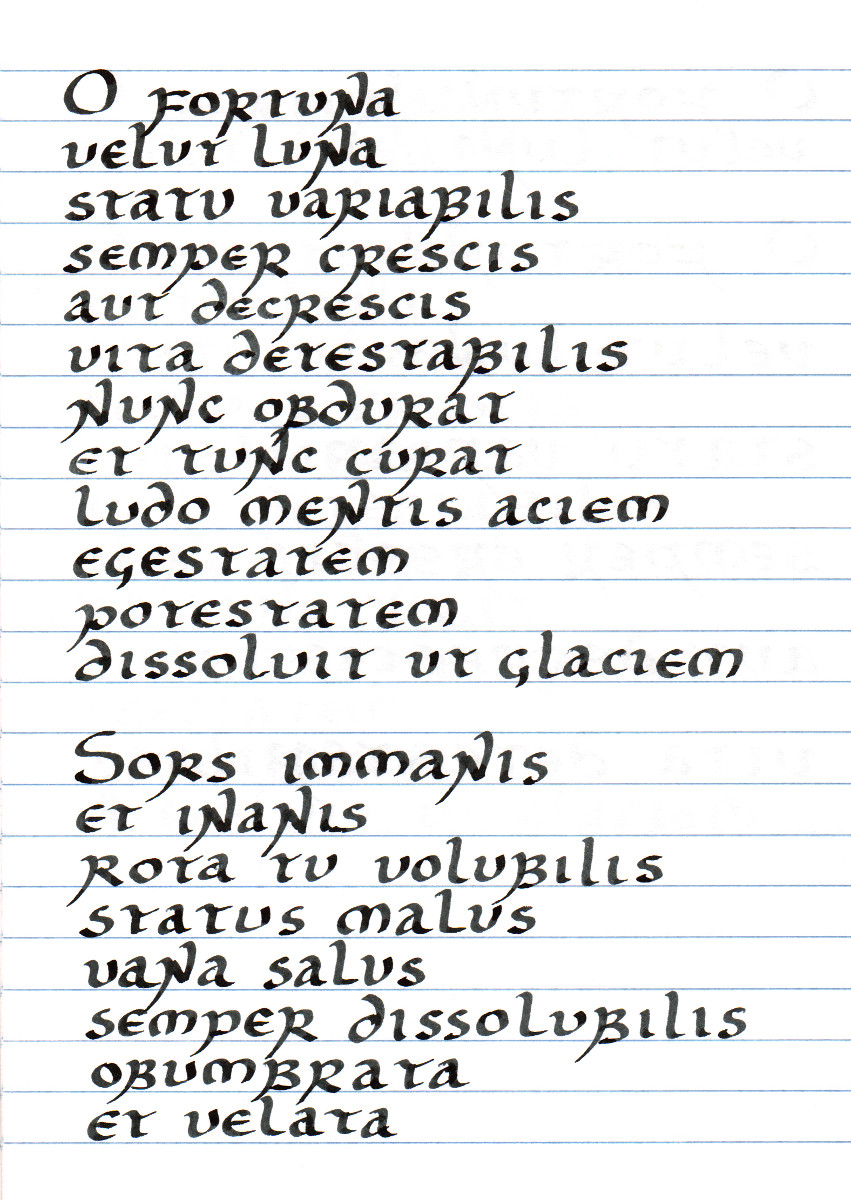 O fortuna
velut luna
statu variabilis
semper crescis
aut decrescis
vita detestabilis
nunc obdurat
et tunc curat
ludo mentis aciem
egestatem
potestatem
dissolvit ut glaciem
Sors immanis
et inanis
rota tu volubilis
status malus
vana salus
semper dissolubilis
obumbrata
et velata